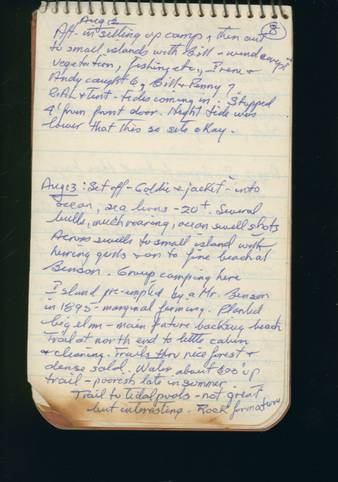 Aug 12
8
Aft - in setting up camp, then out
to small islands with Bill - wind swept
vegetation, fishing etc, Irene &
Andy caught 6, Bill & Penny 7
& tent - tides coming in. Stopped
4' from front door. Night tide was
lower that this so site okay.
Aug 13: Set off - Goldie & jacket - into
ocean, sea lions - 20+. Several
bulls, much roaring, ocean swell shots
Across swells to small island with
herring gulls & on to fine beach at
Benson. Group camping here
Island pre-empted by a Mr. Benson
in 1893 - marginal farming. Planted
big elm - main feature backing beach
Trail at north end to little cabin
& clearing. Trails thru nice forest &
dense salal. Water about 600' up
trail - poorish late in summer.
Trail to tidal pools - not great
but interesting. Rock formations